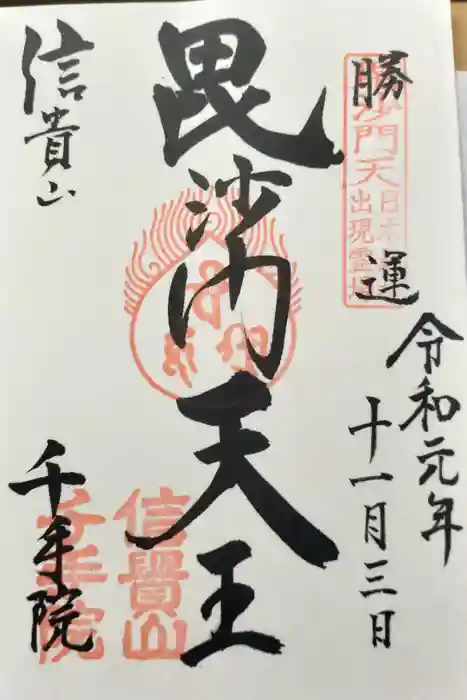 令和元年
十一月三日
勝運
毘沙門天日本
出現霊地
毘沙門天王
信貴山
千手院
信貴山
千手院